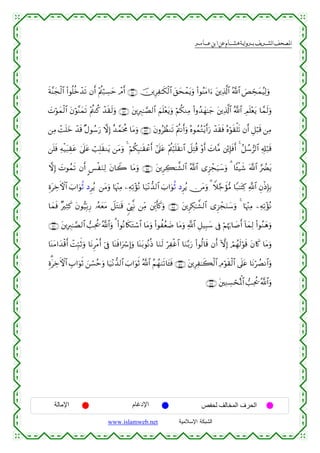 المصحف الشريف برواية هشام عن ابن عامر
وَلِيُمَحِّصَ ٱللَّهُ ٱلَّذِينَ ءَامَنُوا۟ وَيَمْحَقَ ٱلْكَٰفِرِينَ أَمْ حَسِبْتُمْ أَن تَدْخُلُوا۟ ٱلْجَنَّةَ
وَلَمَّا يَعْلَمِ ٱللَّهُ ٱلَّذِينَ جَٰهَدُوا۟ مِنكُمْ وَيَعْلَمَ ٱلصَّٰبِرِينَ وَلَقَدْ كُنتُمْ تَمَنَّوْنَ ٱلْمَوْتَ
مِن قَبْلِ أَن تَلْقَوْهُ فَقَدْ رَأَيْتُمُوهُ وَأَنتُمْ تَنظُرُونَ وَمَا مُحَمَّدٌ إِلَّا رَسُولٌ قَدْ خَلَتْ مِن
قَبْلِهِ ٱلرُّسُلُ أَفَإِي۟ن مَّاتَ أَوْ قُتِلَ ٱنقَلَبْتُمْ عَلَىٰٓ أَعْقَٰبِكُمْ وَمَن يَنقَلِبْ عَلَىٰ عَقِبَيْهِ فَلَن
يَضُرَّ ٱللَّهَ شَيْـًٔا وَسَيَجْزِى ٱللَّهُ ٱلشَّٰكِرِينَ وَمَا كَانَ لِنَفْسٍ أَن تَمُوتَ إِلَّا
بِإِذْنِ ٱللَّهِ كِتَٰبًا مُّؤَجَّلًا وَمَن يُرِد ثَّوَابَ ٱلدُّنْيَا نُؤْتِهِ مِنْهَا وَمَن يُرِد ثَّوَابَ ٱلْءَاخِرَةِ
نُؤْتِهِ مِنْهَا وَسَنَجْزِى ٱلشَّٰكِرِينَ وَكَأَيِّن مِّن نَّبِىٍّ قَٰتَلَ مَعَهُۥ رِبِّيُّونَ كَثِيرٌ فَمَا
وَهَنُوا۟ لِمَآ أَصَابَهُمْ فِى سَبِيلِ ٱللَّهِ وَمَا ضَعُفُوا۟ وَمَا ٱسْتَكَانُوا۟ وَٱللَّهُ يُحِبُّ ٱلصَّٰبِرِينَ
وَمَا كَانَ قَوْلَهُمْ إِلَّآ أَن قَالُوا۟ رَبَّنَا ٱغْفِرْ لَنَا ذُنُوبَنَا وَإِسْرَافَنَا فِىٓ أَمْرِنَا وَثَبِّتْ أَقْدَامَنَا
وَٱنصُرْنَا عَلَى ٱلْقَوْمِ ٱلْكَٰفِرِينَ فَـَٔاتَىٰهُمُ ٱللَّهُ ثَوَابَ ٱلدُّنْيَا وَحُسْنَ ثَوَابِ ٱلْءَاخِرَةِ
وَٱللَّهُ يُحِبُّ ٱلْمُحْسِنِينَ
الحرف المخالف لحفص الإدغام الإمالة
الشبكة الإسلامية www.islamweb.net